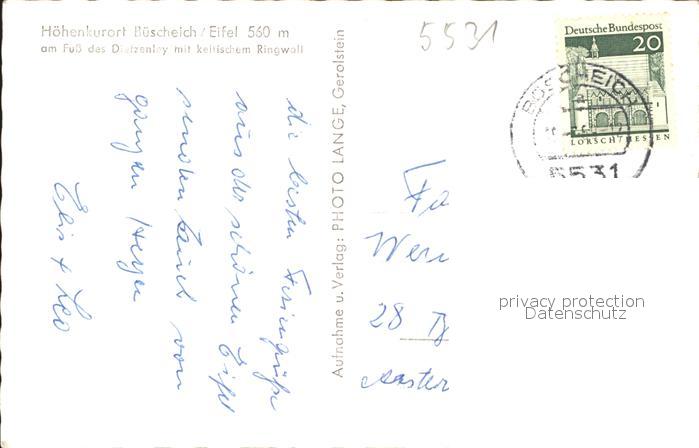 Höhenkurort Büscheich / Eifel 560 m
am Fuß des Dietzenley mit keltischem Ringwall
5531
Deutsche Bundespost
20
LORSCH HESSEN
BÜSCHEICH
5531
die besten Feriengrüße
aus der schönen Eifel
senden Euch von
ganzem Herzen
Elis + Leo
Aufnahme u. Verlag: PHOTO LANGE, Gerolstein
Fa
Wer
28 B
Aster
privacy protection
Datenschutz